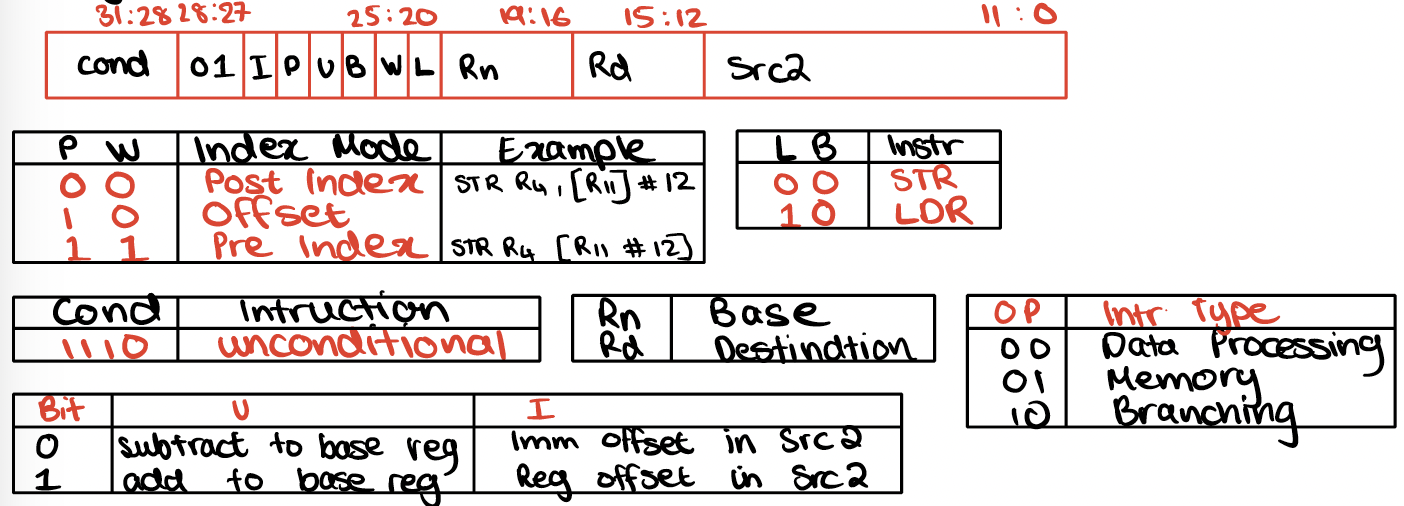 31:28 28:27 25:20 19:16 15:12 11:0
cond 01 I P U B W L Rn Rd Src2
P W Index Mode Example
0 0 Post Index STR R4, [R11] #12
1 0 Offset
1 1 Pre Index STR R4 [R11 #12]
L B Instr
0 0 STR
1 0 LDR
Cond Intruction
1110 unconditional
Rn Base
Rd Destindtion
OP Intr. Type
00 Data Processing
01 Memory
10 Branching
Bit U I
0 subtract to base reg Imm offset in Src2
1 add to base reg Reg offset in Src2